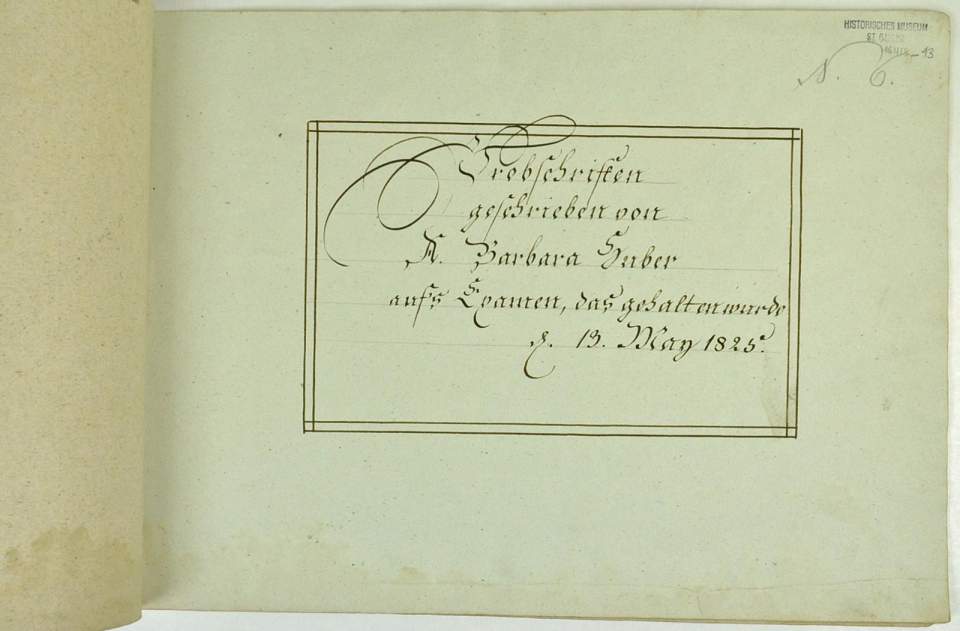 HISTORISCHES MUSEUM
ST. GALLEN
N. 6.
Probschriften
geschrieben von
A. Barbara Huber
aufs Examen, das gehalten wurde
d. 13. May 1825.